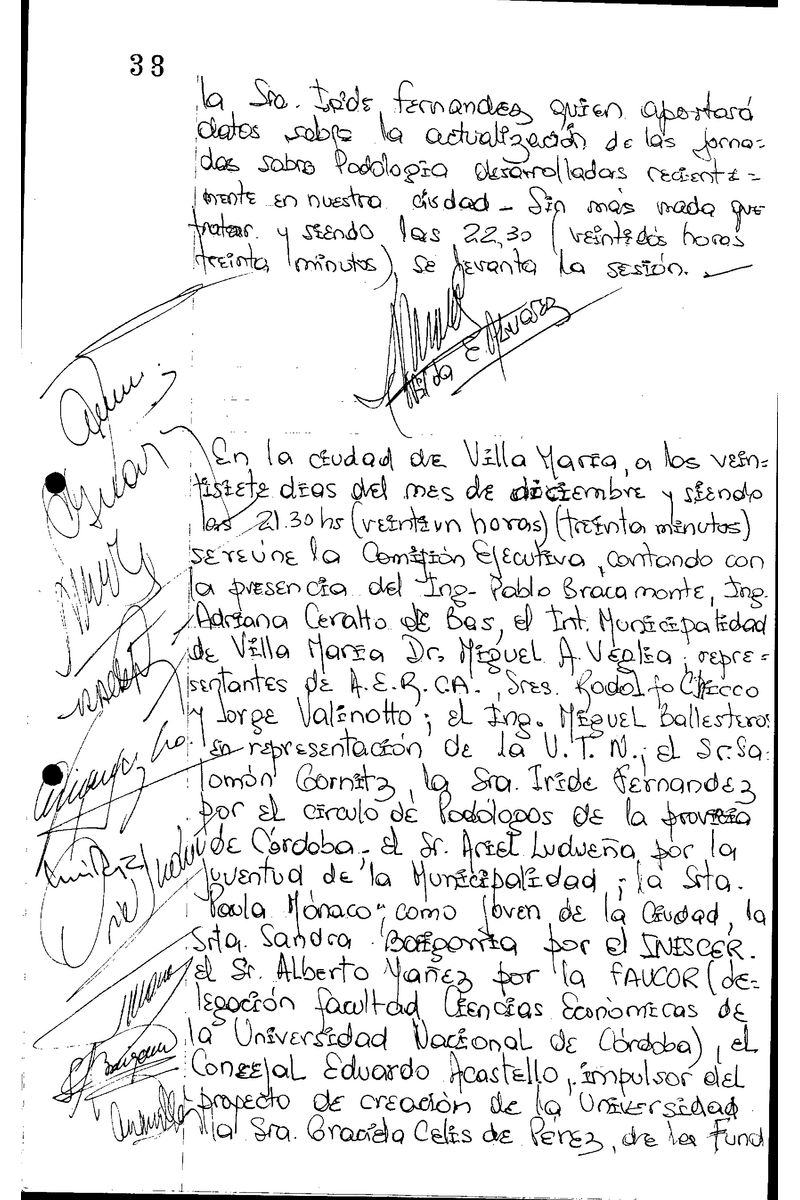 38
la Sra. Iride Fernandez quien aportará
datos sobre la actualización de las jorna-
das sobre Podología desarrolladas reciente-
mente en nuestra ciudad - Sin más nada que
tratar y siendo las 22,30 (veintidós horas
treinta minutos) se levanta la sesión.
E. Alvarez
En la ciudad de Villa María, a los vein-
tisiete días del mes de diciembre y siendo
las 21.30 hs (veintiun horas) (treinta minutos)
se reúne la Comisión Ejecutiva, contando con
la presencia del Ing. Pablo Bracamonte, Ing.
Adriana Ceratto de Bas, el Int. Municipalidad
de Villa María Dr. Miguel A. Veglia; repre-
sentantes de A.E.R.CA., Sres. Rodolfo Chicco
y Jorge Valinotto; el Ing. Miguel Ballesteros
en representación de la U.T.N.; el Sr. Sa
lomón Gornitz, la Sra. Iride Fernandez
por el círculo de Podólogos de la provicia
de Córdoba, el Sr. Ariel Ludueña por la
juventud de la Municipalidad; la Srta.
Paola Mónaco, como joven de la Ciudad, la
Srta. Sandra Baigorria por el INESCER.
el Sr. Alberto Yañez por la FAUCOR (de-
legación facultad Ciencias Económicas de
la Universidad Nacional de Córdoba), el
Concejal Eduardo Acastello, impulsor del
proyecto de creación de la Universidad
la Sra. Graciela Celis de Pérez, de la Fund